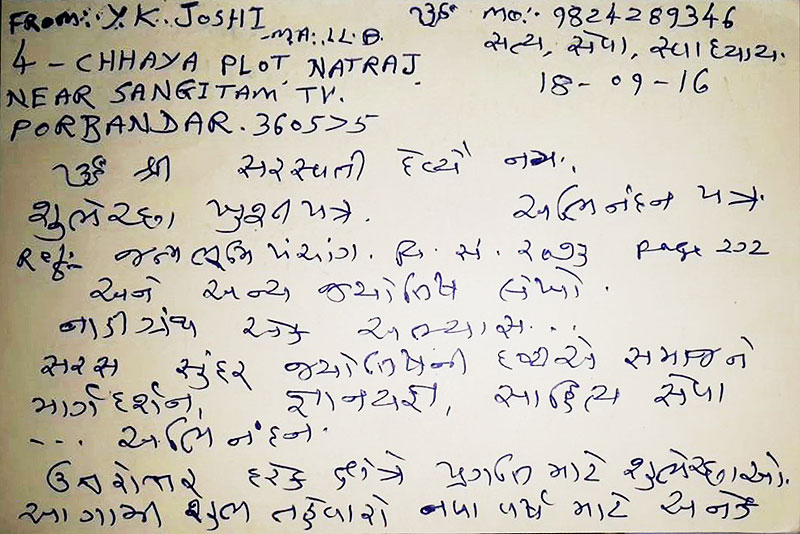 FROM: Y. K. JOSHI ૐ MO:- 9824289346
- MA: LL.B. સત્ય, સેવા, સ્વાધ્યાય.
4 - CHHAYA PLOT NATRAJ 18-09-16
NEAR SANGITAM TV.
PORBANDAR. 360575
ૐ શ્રી સરસ્વતી દેવ્યૈ નમઃ
શુભેચ્છા ખુશીપત્ર. અભિનંદન પત્ર.
Ref:- જન્મભૂમિ પંચાંગ. વિ. સં. ૨૦૭૩ page 202
અને અન્ય જ્યોતિષ લેખો.
નાડીગ્રંથ એક અભ્યાસ...
સરસ સુંદર જ્યોતિષની દૃષ્ટિએ સમાજને
માર્ગદર્શન, જ્ઞાનયજ્ઞ, સાહિત્ય સેવા
... અભિનંદન.
ઉત્તરોત્તર દરેક ક્ષેત્રે પ્રગતિ માટે શુભેચ્છાઓ.
આગામી શુભ તહેવારો નવા વર્ષ માટે અનેક